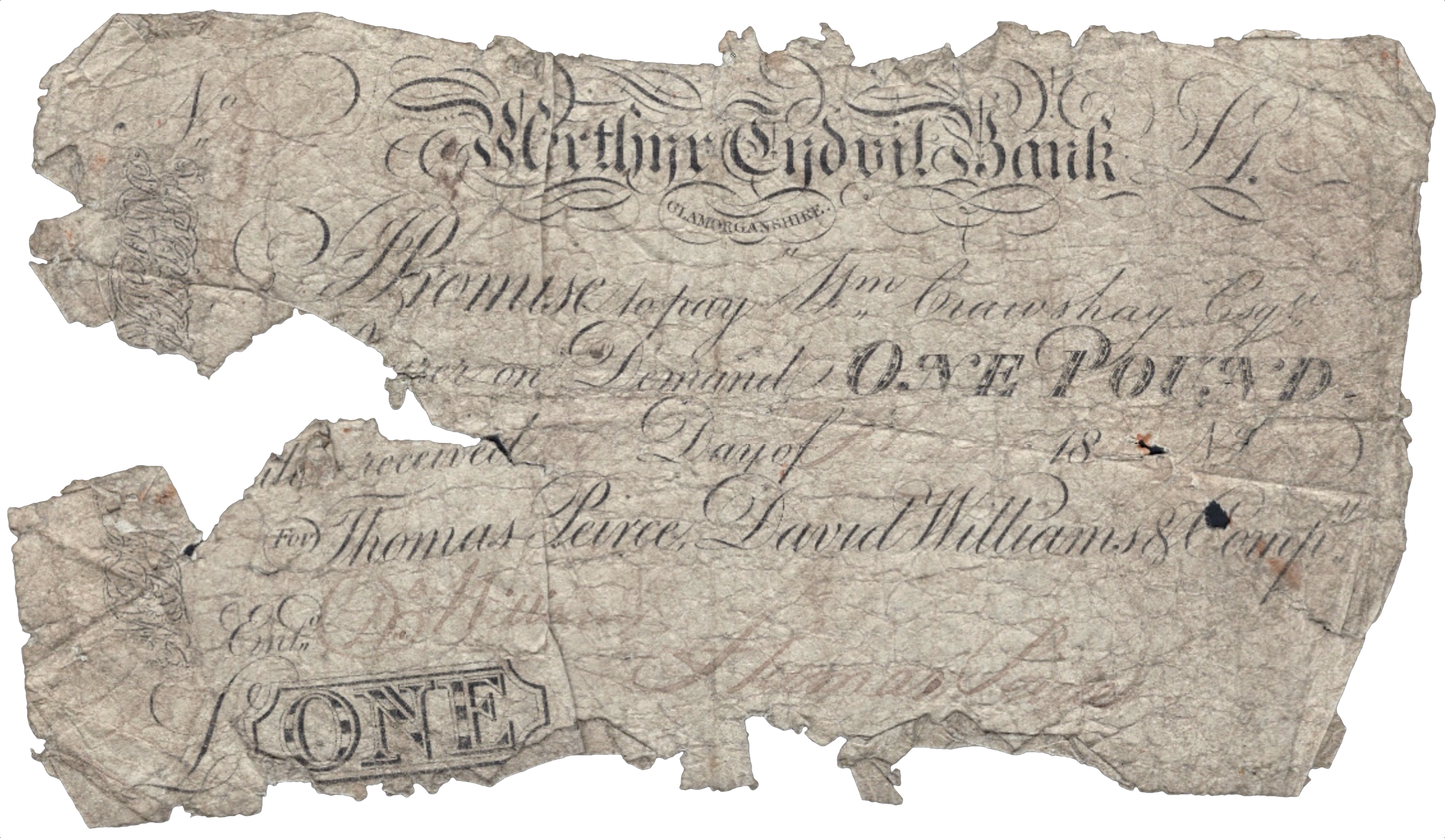 No £1.
Merthyr Tydvil Bank
GLAMORGANSHIRE.
I Promise to pay Wm Crawshay Esqr
on Demand ONE POUND.
received Day of 18
For Thomas Peirce, David Williams & Compy
Entd D. Williams
Thomas Peirce
£ ONE